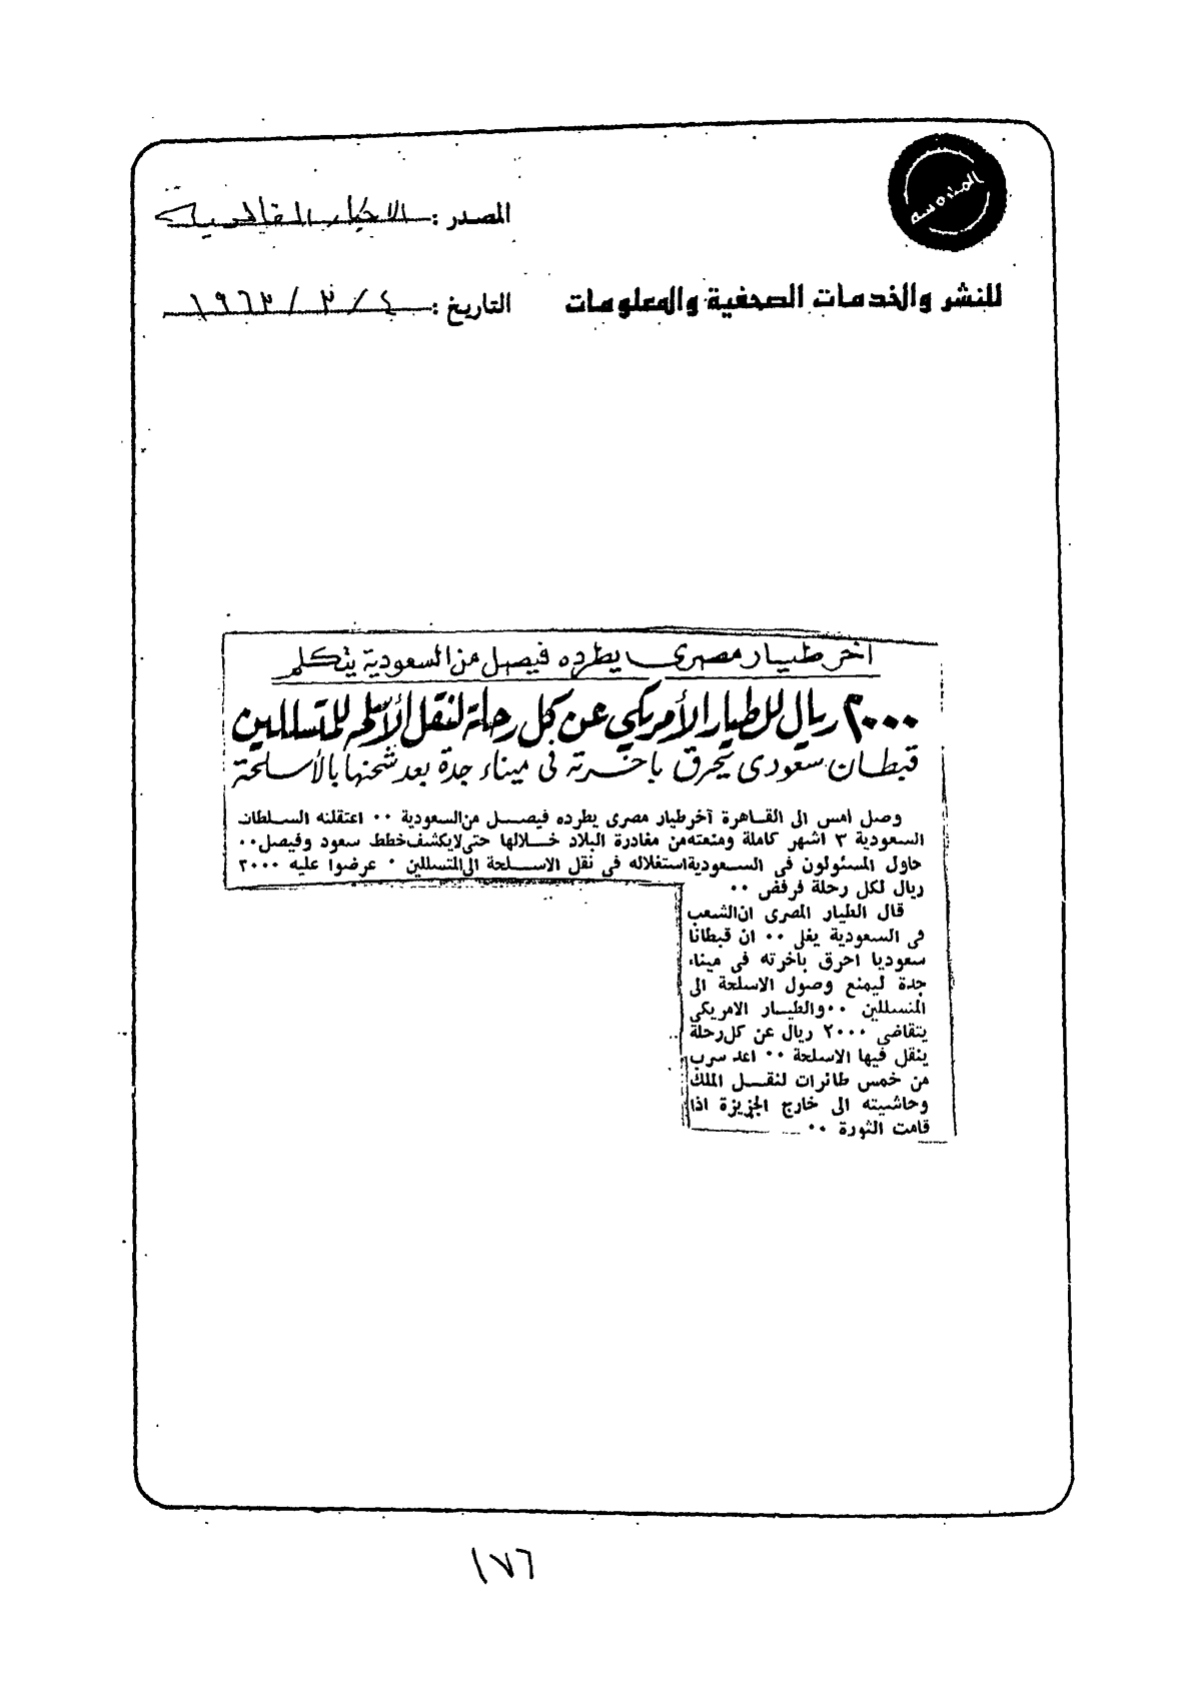 المصدر : الاخبار القاهرية
للنشر والخدمات الصحفية والمعلومات
التاريخ : ٤ / ٣ / ١٩٦٣
آخر طيار مصرى يطرده فيصل من السعودية يتكلم
٢٠٠٠ ريال للطيار الأمريكي عن كل رحلة لنقل الأسلحة للمتسللين
قبطان سعودى يحرق باخرته فى ميناء جدة بعد شحنها بالأسلحة
وصل امس الى القاهرة آخر طيار مصرى يطرده فيصل من السعودية ٠٠ اعتقلته السلطات
السعودية ٣ اشهر كاملة ومنعته من مغادرة البلاد خلالها حتى لا يكشف خطط سعود وفيصل ٠٠
حاول المسئولون فى السعودية استغلاله فى نقل الاسلحة الى المتسللين ٠ عرضوا عليه ٢٠٠٠
ريال لكل رحلة فرفض ٠٠
قال الطيار المصرى ان الشعب
فى السعودية يغلى ٠٠ ان قبطانا
سعوديا احرق باخرته فى ميناء
جدة ليمنع وصول الاسلحة الى
المتسللين ٠٠ والطيار الامريكى
يتقاضى ٢٠٠٠ ريال عن كل رحلة
ينقل فيها الاسلحة ٠٠ اعد سرب
من خمس طائرات لنقل الملك
وحاشيته الى خارج الجزيرة اذا
قامت الثورة ٠٠
١٧٦